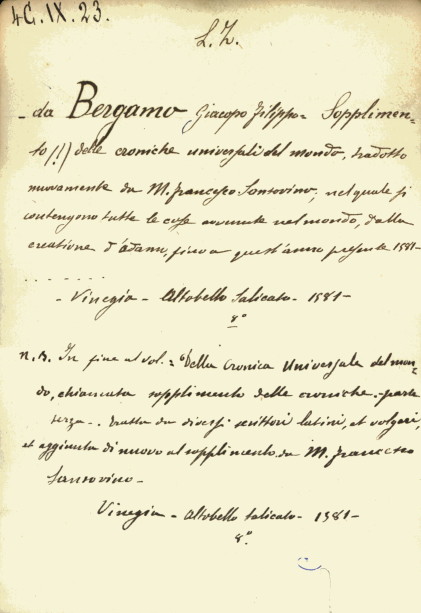 4G.IX.23.
L.Z.
- da Bergamo Giacopo Filippo = Sopplimen-
to (!) delle croniche universali del mondo, tradotto
nuovamente da M. Francesco Sansovino, nel quale si
contengono tutte le cose avvenute nel mondo, dalla
creatione d'Adamo, fino a quest'anno presente 1581-
. . . . . . .
- Vinegia - Altobello Salicato - 1581 -
8º
N.B. In fine al vol. = "Della Cronica Universale del mon-
do, chiamata sopplimento delle croniche - parte
terza -. tratta da diversi scrittori latini, et volgari,
et aggiunta di nuovo al sopplimento da M. Francesco
Sansovino -
Vinegia - Altobello Salicato - 1581 -
8º